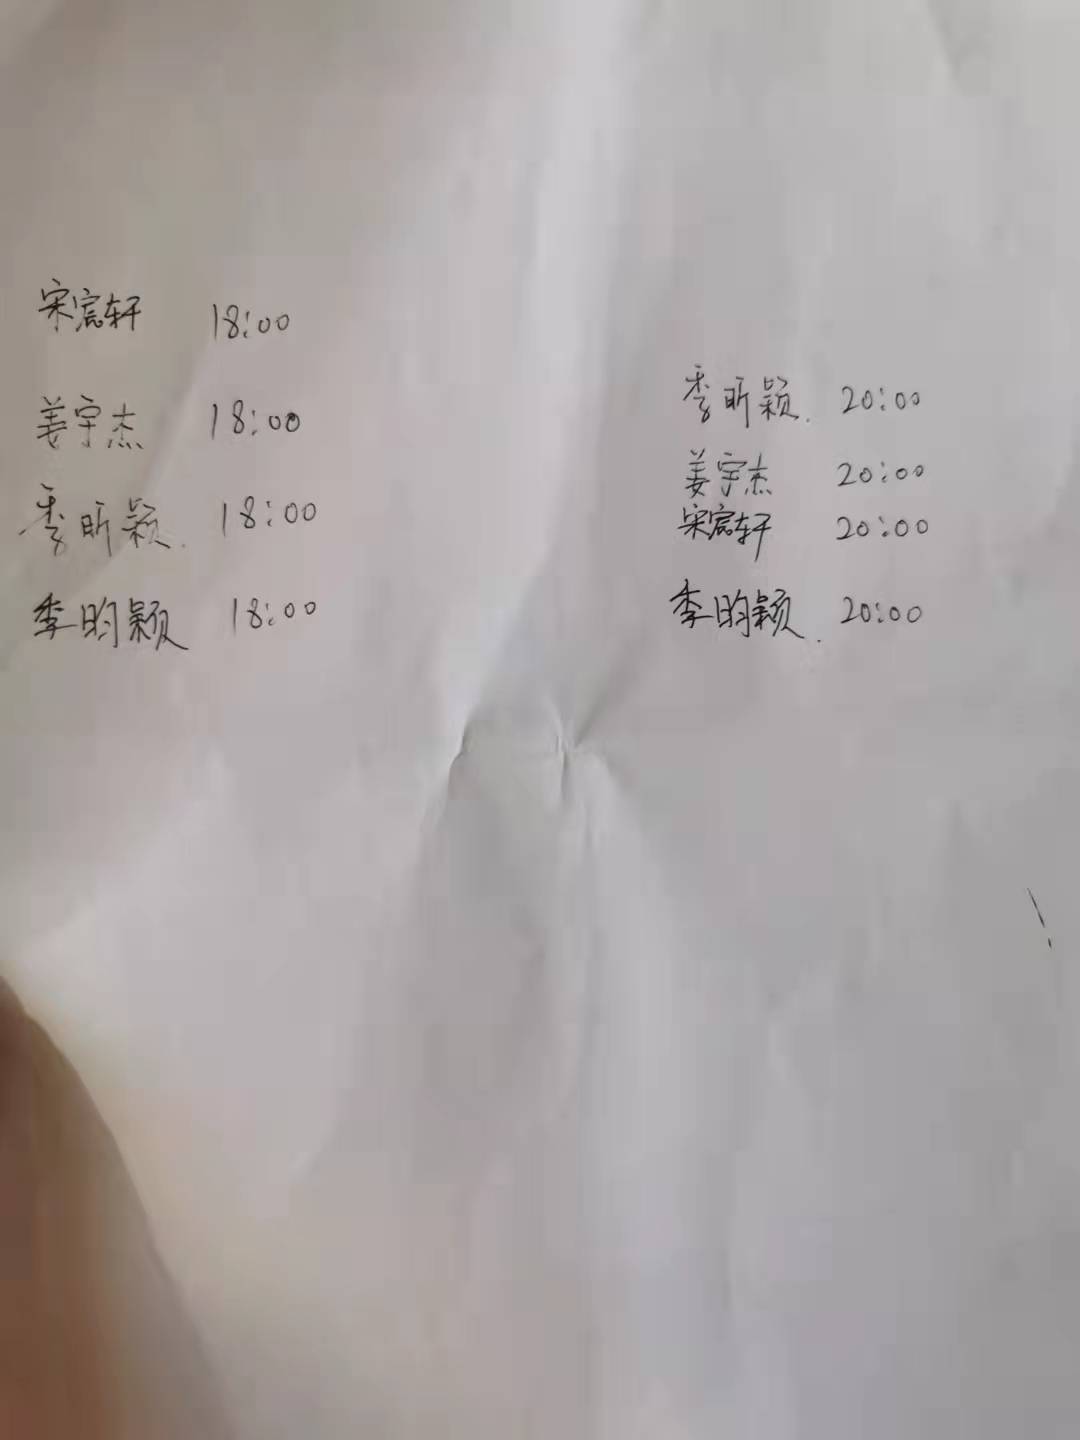 宋宸轩 18:00
姜宇杰 18:00
季昕颖. 18:00
李昀颖 18:00
季昕颖. 20:00
姜宇杰 20:00
宋宸轩 20:00
李昀颖. 20:00